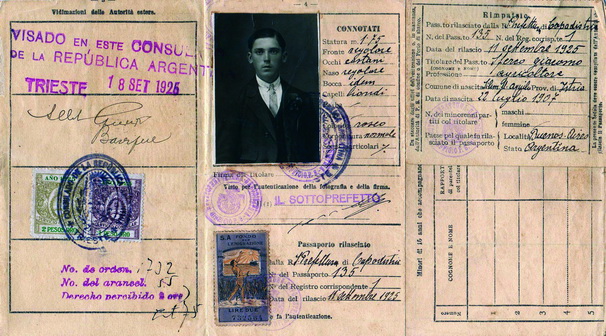 Vidimazioni delle Autorità estere.
VISADO EN ESTE CONSUL
DE LA REPÚBLICA ARGENT
TRIESTE 18 SET 1925
AÑO
2 PESOS
CONSULADO DE LA REPUBLICA
TRIESTE
No. de orden. 1792
No. del arancel. 55
Derecho percibido 2 oro
— 4 —
CONNOTATI
Statura m. 1.75
Fronte regolare
Occhi castani
Naso regolare
Bocca idem
Capelli biondi
roseo
normale
particolari
Firma del titolare
Visto per l'autenticazione della fotografia e della firma.
IL SOTTOPREFETTO
S.A.
LIRE DUE
Passaporto rilasciato
dalla R. Prefettura di Capodistria
N. del Passaporto 135
N. del Registro corrispondente 1
Data del rilascio 11 Settembre 1925
per l'autenticazione.
Rimpatrio
Passaporto rilasciato dalla R. Prefettura Capodistria
N. del Passaporto 135 N. del Reg. corrisp.te 1
Data del rilascio 11 settembre 1925
Titolare del Passaporto giacomo
Professione agricoltore
Comune di nascita Prov. di Istria
Data di nascita 22 luglio 1907
N. dei minorenni parti col titolare
maschi
femmine
Paese pel quale fu rilasciato il passaporto
Località Buenos-Aires
Stato Argentina
Minori di 15 anni che accompagnano
RAPPORTO di parentela col titolare
COGNOME E NOME
1
2
3
4
5